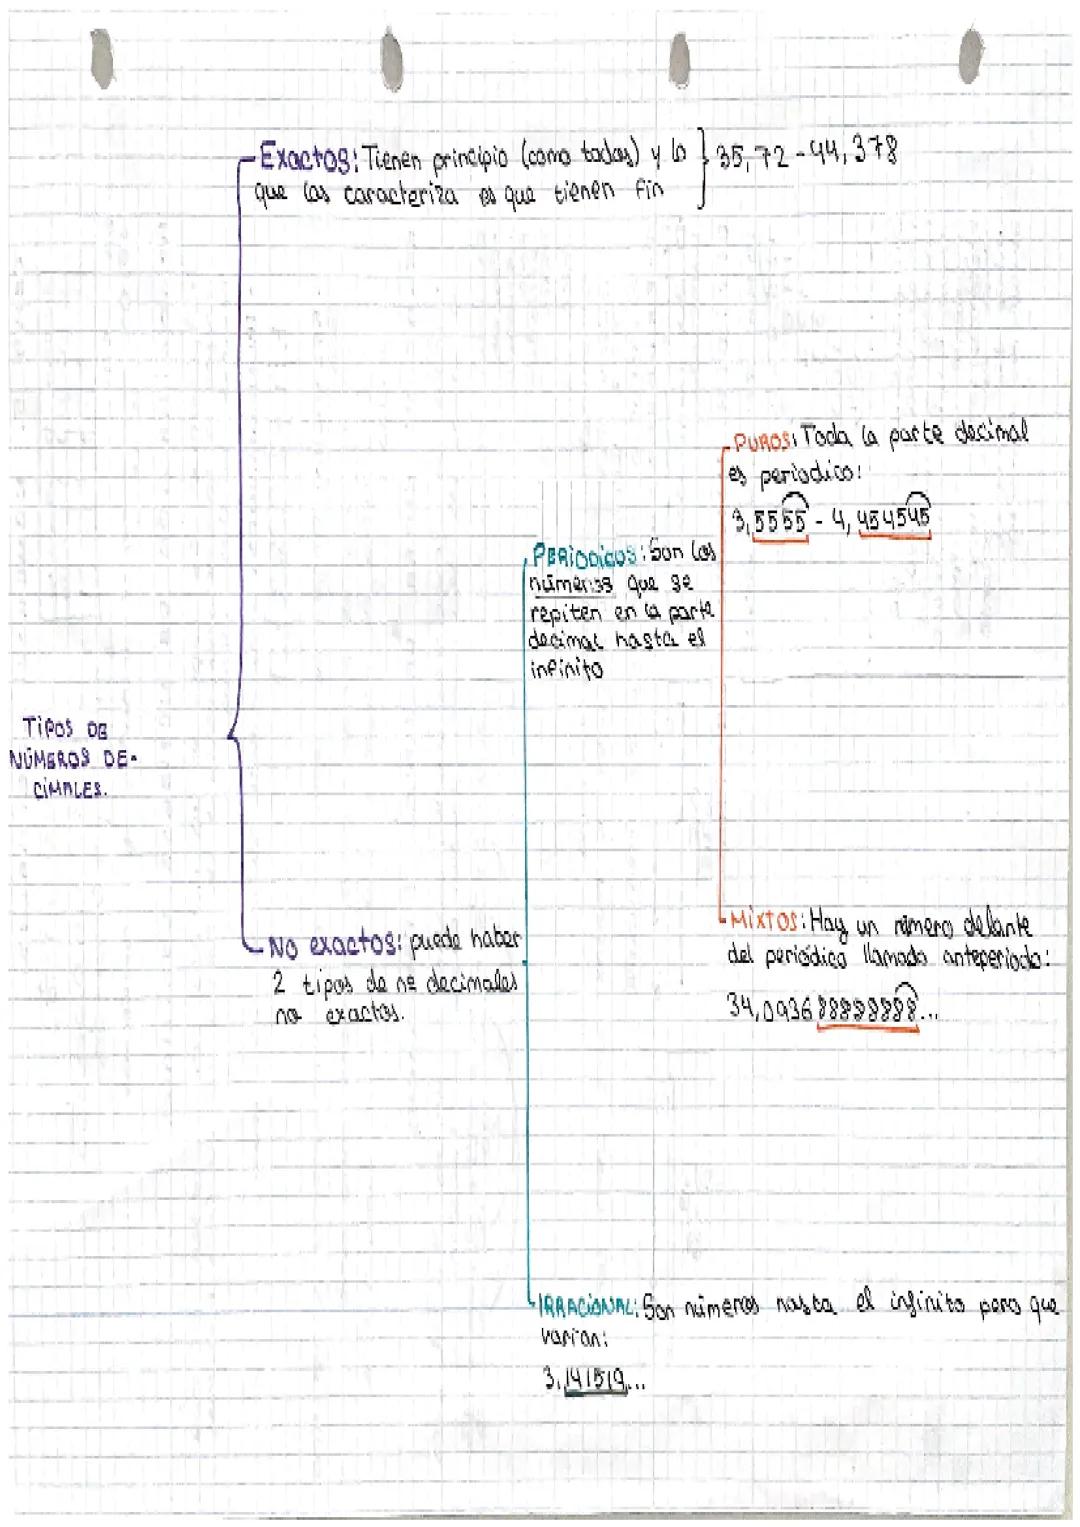 Exactos: Tienen principio (como todos) y lo
que los caracteriza es que tienen fin
35,72 - 44,378
PUROS: Toda la parte decimal
es periodico:
3,5555 - 4,454545
PERIODICOS: Son los
números que se
repiten en la parte
decimal hasta el
infinito
TIPOS DE
NÚMEROS DE-
CIMALES.
No exactos: puede haber
2 tipos de nº decimales
no exactos.
MIXTOS: Hay un número delante
del periódico llamado anteperiodo:
34,093688888888...
IRRACIONAL: Son números hasta el infinito pero que
varian:
3,141519...